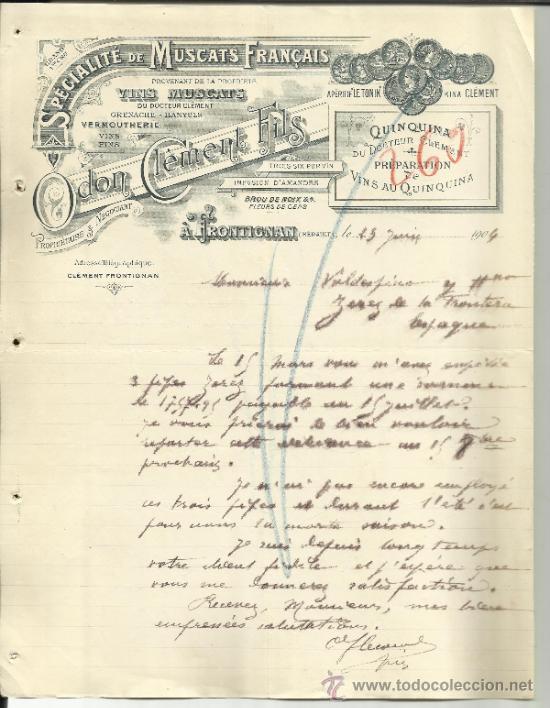 GRAND FORMAT
SPÉCIALITÉ DE MUSCATS FRANÇAIS
PROVENANT DE LA PROPRIÉTÉ
VINS MUSCATS
DU DOCTEUR CLÉMENT
GRENACHE - BANYULS
VERMOUTHERIE
VINS
FINS
Odon Clément Fils
PROPRIÉTAIRE & NÉGOCIANT
TROIS SIX PUR VIN
INFUSION D'AMANDES
BROU DE NOIX &a
FLEURS DE CEPS
APÉRITIF LE TONIK KINA CLÉMENT
QUINQUINA
DU DOCTEUR CLÉMENT
PRÉPARATION
DE
VINS AU QUINQUINA
260
Adresse Télégraphique
CLÉMENT FRONTIGNAN
A FRONTIGNAN (HÉRAULT), le 23 Juin 1904
Messieurs Valdespino y Hno
Jerez de la Frontera
Espagne
Le 15 Mars vous m'avez expédié
3 fûts Jerez formant une somme
de payable au 15 Juillet.
Je vous prierai de bien vouloir
reporter cette au 15
prochain.
Je n'ai pas encore employé
ces trois fûts et durant l'été c'est
pour nous la morte saison.
Je suis depuis longtemps
votre client fidèle et j'espère que
vous me donnerez satisfaction.
Recevez, Messieurs, mes bien
empressées salutations.
O Clément
fils
www.todocoleccion.net